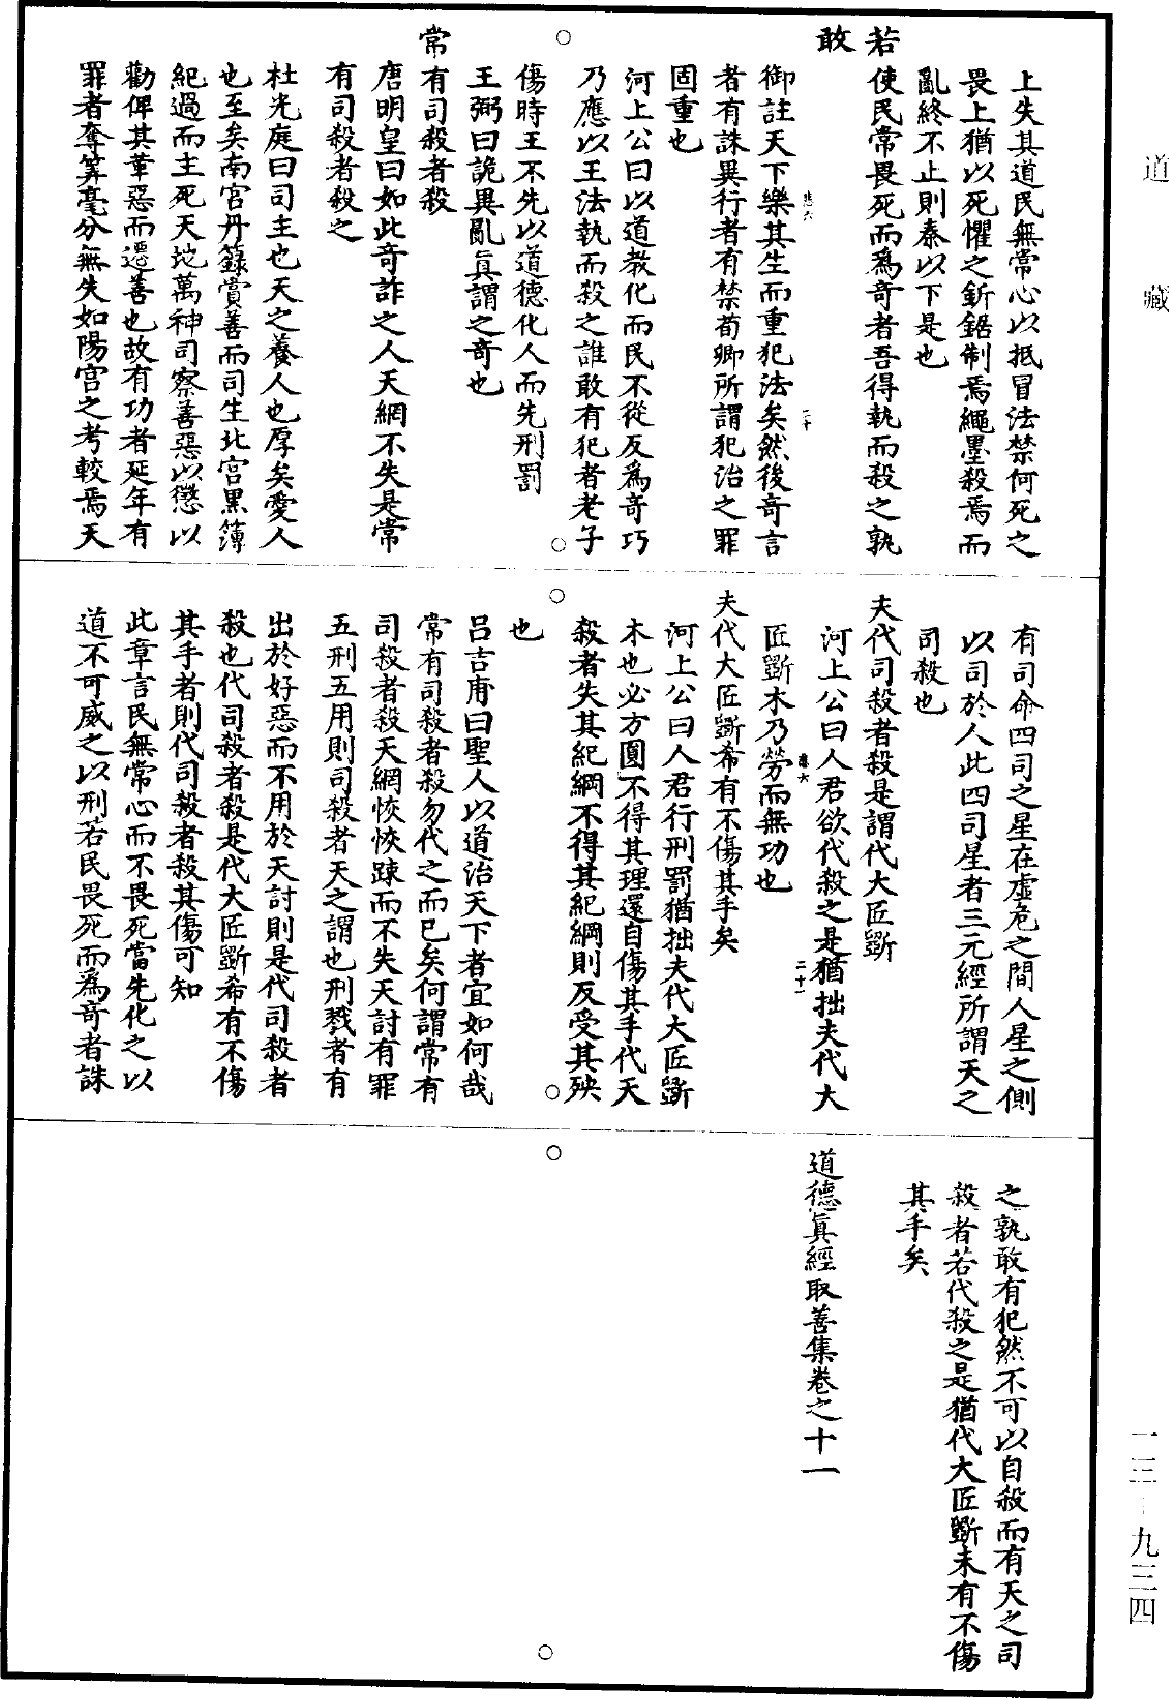 道藏
上失其道民無常心以抵冒法禁何死之
畏上猶以死懼之釿鋸制焉繩墨殺焉而
亂終不止則秦以下是也
若使民常畏死而爲奇者吾得執而殺之孰
敢
御註天下樂其生而重犯法矣然後奇言
者有誅異行者有禁荀卿所謂犯治之罪
固重也
河上公曰以道教化而民不從反爲奇巧
乃應以王法執而殺之誰敢有犯者老子
傷時王不先以道德化人而先刑罰
王弼曰詭異亂眞謂之奇也
常有司殺者殺
唐明皇曰如此奇詐之人天網不失是常
有司殺者殺之
杜光庭曰司主也天之養人也厚矣愛人
也至矣南宮丹籙賞善而司生北宮黑簿
紀過而主死天地萬神司察善惡以懲以
勸俾其革惡而遷善也故有功者延年有
罪者奪筭毫分無失如陽宮之考較焉天
有司命四司之星在虛危之間人星之側
以司於人此四司星者三元經所謂天之
司殺也
夫代司殺者殺是謂代大匠斲
河上公曰人君欲代殺之是猶拙夫代大
匠斲木乃勞而無功也
夫代大匠斲希有不傷其手矣
河上公曰人君行刑罰猶拙夫代大匠斲
木也必方圓不得其理還自傷其手代天
殺者失其紀綱不得其紀綱則反受其殃
也
呂吉甫曰聖人以道治天下者宜如何哉
常有司殺者殺勿代之而已矣何謂常有
司殺者殺天網恢恢踈而不失天討有罪
五刑五用則司殺者天之謂也刑戮者有
出於好惡而不用於天討則是代司殺者
殺也代司殺者殺是代大匠斲希有不傷
其手者則代司殺者殺其傷可知
此章言民無常心而不畏死當先化之以
道不可威之以刑若民畏死而爲奇者誅
之孰敢有犯然不可以自殺而有天之司
殺者若代殺之是猶代大匠斲未有不傷
其手矣
道德眞經取善集卷之十一
一三-九三四